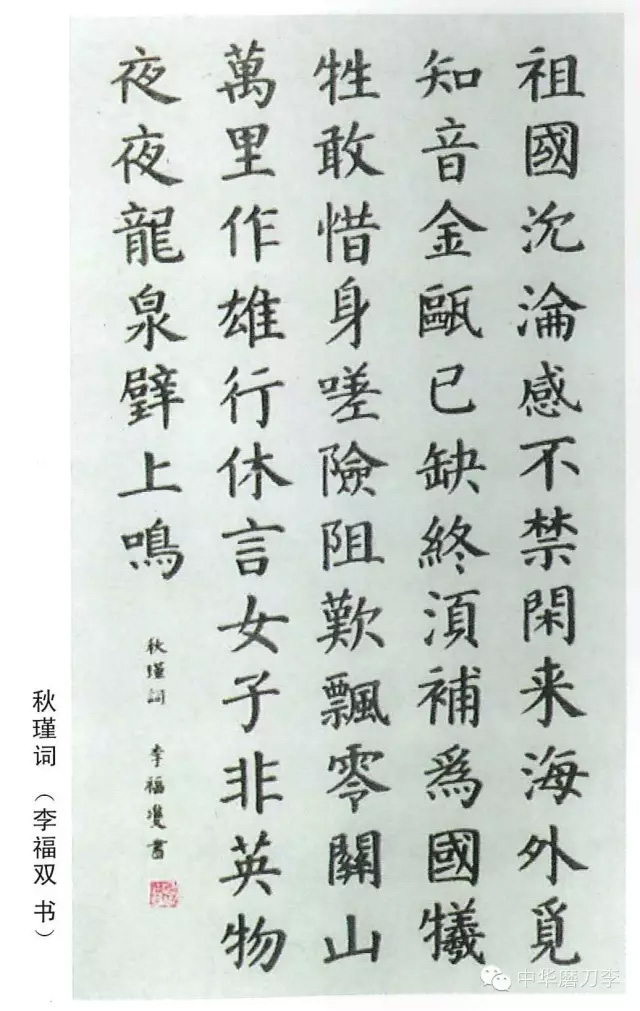 祖國沉淪感不禁閑来海外覓
知音金甌已缺終須補爲國犧
牲敢惜身嗟險阻歎飄零關山
萬里作雄行休言女子非英物
夜夜龍泉壁上鳴
秋瑾詞 李福雙書
秋瑾词（李福双 书）
中华磨刀李